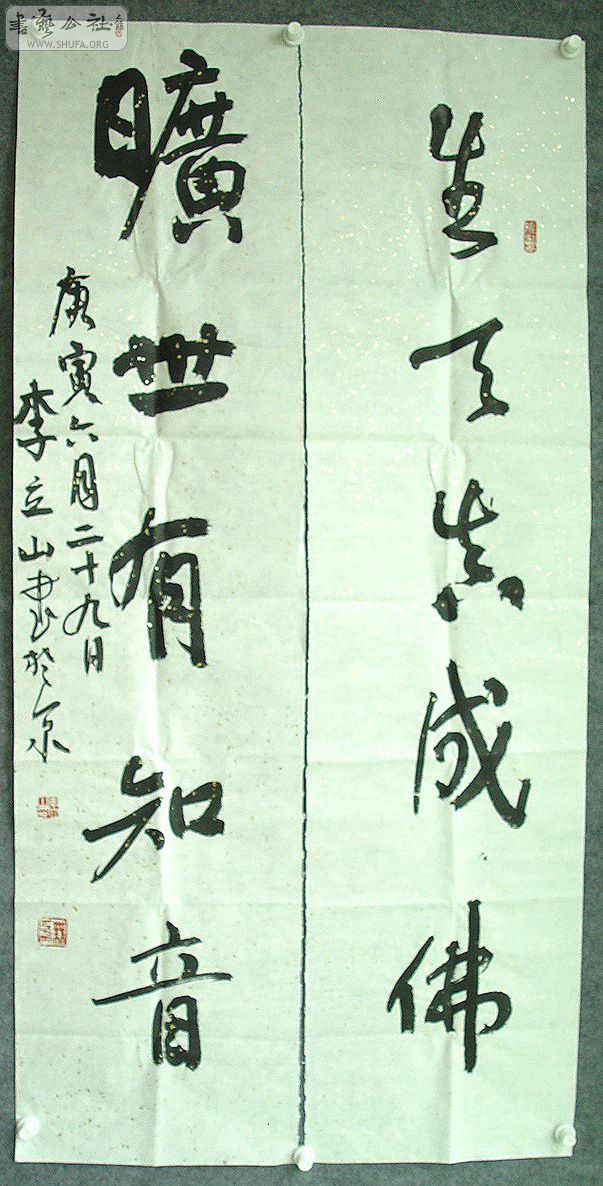 書藝公社
WWW.SHUFA.ORG
天真成佛
曠世有知音
庚寅六月二十九日
李立山書於京